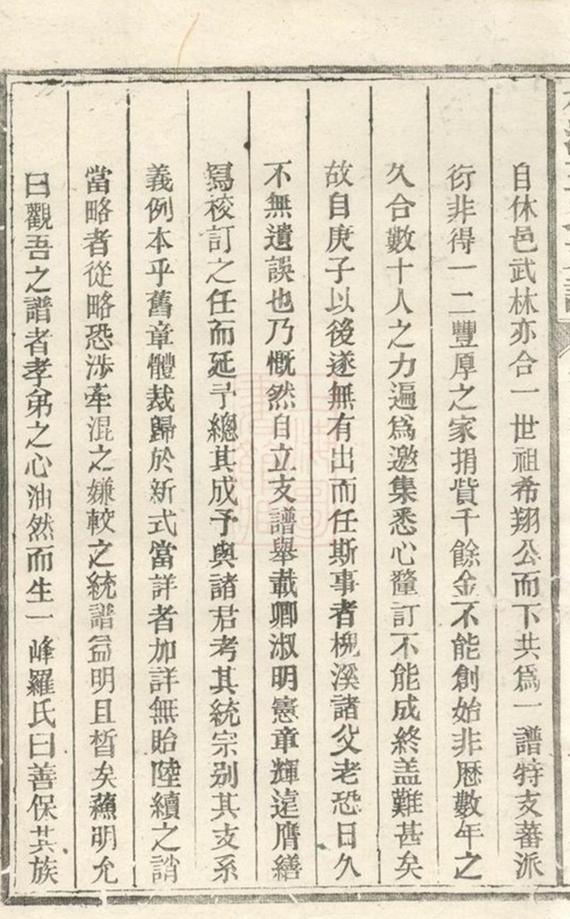 自休邑武林亦合一世祖希翔公而下共為一譜特支蕃派
衍非得一二豐厚之家捐貲千餘金不能創始非歷數年之
久合數十人之力遍為邀集悉心釐訂不能成終盖難甚矣
故自庚子以後遂無有出而任斯事者棿溪諸父老恐日久
不無遺誤也乃慨然自立支譜舉載卿淑明憲章輝遠膺繕
寫校訂之任而延予總其成予與諸君考其統宗别其支系
義例本乎舊章體裁歸於新式當詳者加詳無貽陸續之誚
當略者從略恐涉牽混之嫌較之統譜益明且晳矣蘓明允
曰觀吾之譜者孝弟之心油然而生一峰羅氏曰善保其族